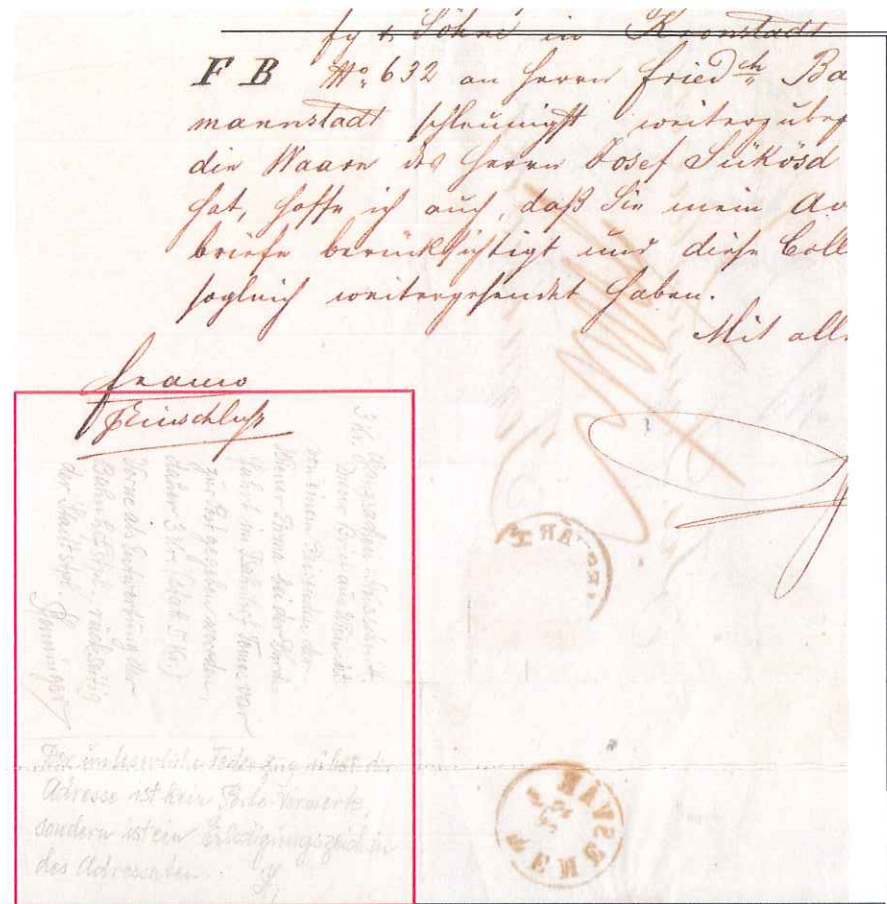 & Söhne in Kronstadt
F B No 632 an Herrn Friedch Ba
mannstadt schleunigst weiterzubef
die Waare des Herrn Josef Sükösd
hat, hoffe ich auch, daß Sie mein Av
briefe berücksichtigt und diese Coll
sogleich weitergesendet haben.
Mit all
franco
Einschluß
3 Kr.
Dieser Brief aus Wien ist
von einem Reisenden der
Wiener Firma bei der Durch-
fahrt im Bahnhof Temesvar
zur Post gegeben worden,
daher 3 Kr. (statt 5 Kr.)
Vorne als Entwertung der
Bahnhofstpl. rückseitig
der Stadtstpl.
Der unleserliche Federzug über der
Adresse ist kein Porto-Vermerk,
sondern ist ein Erledigungszeichen
des Adressaten.
TEMESVÁR